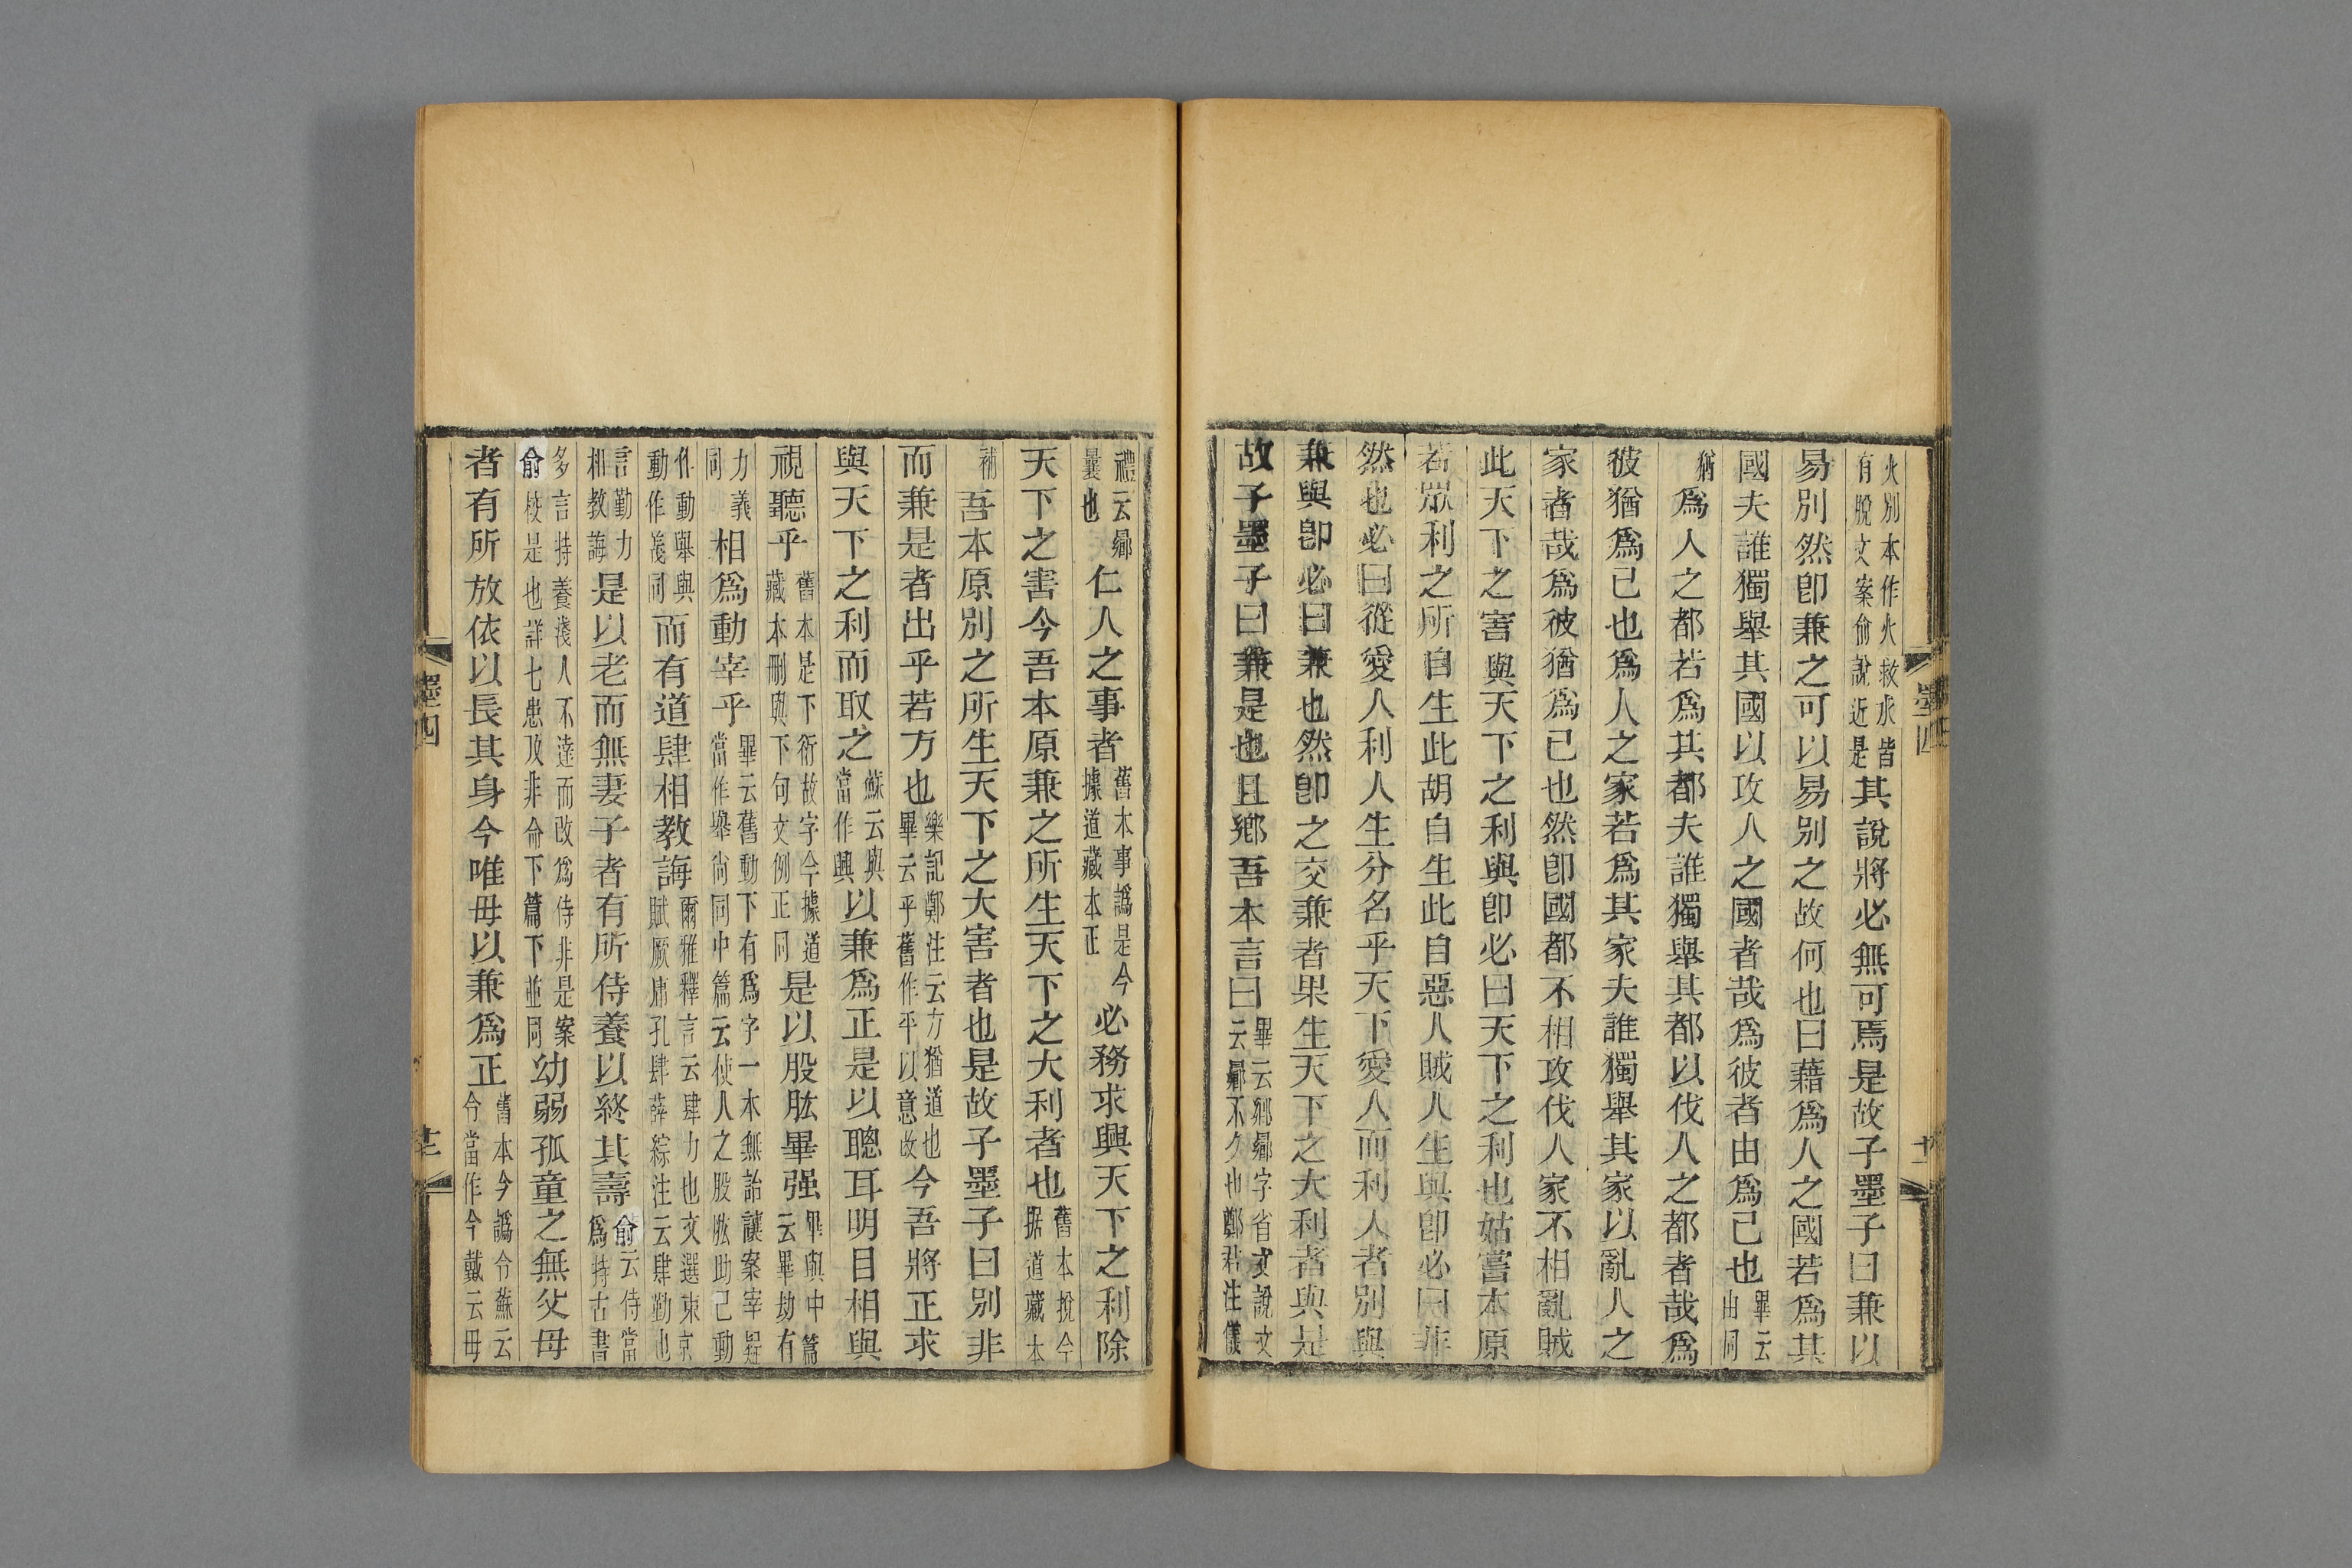 火別本作火救水皆
有脫文案俞說近是其說將必無可焉是故子墨子曰兼以
易別然卽兼之可以易別之故何也曰藉爲人之國若爲其
國夫誰獨舉其國以攻人之國者哉爲彼者由爲己也畢云由同
猶爲人之都若爲其都夫誰獨舉其都以伐人之都者哉爲
彼猶爲己也爲人之家若爲其家夫誰獨舉其家以亂人之
家者哉爲彼猶爲己也然卽國都不相攻伐人家不相亂賊
此天下之害與天下之利與卽必曰天下之利也姑嘗本原
若眾利之所自生此胡自生此自惡人賊人生與卽必曰非
然也必曰從愛人利人生分名乎天下愛人而利人者別與
兼與卽必曰兼也然卽之交兼者果生天下之大利者與是
故子墨子曰兼是也且鄉吾本言曰畢云鄉曏字省文說文
云曏不久也鄭君注儀
墨四
禮云曏
曩也仁人之事者舊本事譌是今
據道藏本正必務求興天下之利除
天下之害今吾本原兼之所生天下之大利者也舊本挩今
据道藏本
補吾本原別之所生天下之大害者也是故子墨子曰別非
而兼是者出乎若方也樂記鄭注云方猶道也
畢云乎舊作平以意改今吾將正求
與天下之利而取之蘇云與
當作興以兼爲正是以聰耳明目相與
視聽乎舊本是下衍故字今據道
藏本刪與下句文例正同是以股肱畢强畢與中篇
云畢劫有
力義
同相爲動宰乎畢云舊動下有爲字一本無詒讓案宰疑
當作舉尙同中篇云使人之股肱助己動
作動舉與
動作義同而有道肆相教誨爾雅釋言云肆力也文選東京
賦厥庸孔肆薛綜注云肆勤也
言勤力
相教誨是以老而無妻子者有所侍養以終其壽俞云侍當
爲持古書
多言持養淺人不達而改爲侍非是案
俞校是也詳七患及非命下篇下並同幼弱孤童之無父母
者有所放依以長其身今唯毋以兼爲正舊本今譌令蘇云
令當作今戴云毋
墨四